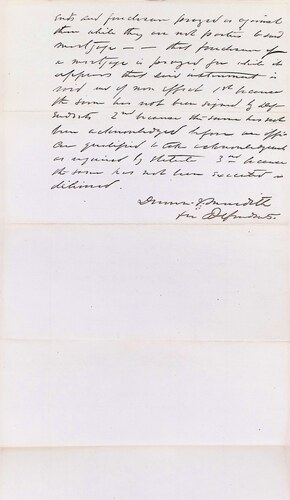 ends and foreclosure prayed as against
them while they are not parties to said
mortgage — — that foreclosure of
a mortgage is prayed for while it
appears that said instrument is
void and of non effect 1st because
the same has not been signed by Def-
endants 2nd because the same has not
been acknowledged before an offi-
cer qualified to take acknowledgment
as required by statute 3rd because
the same has not been executed &
delivered.
& Meredith
for Defendants.